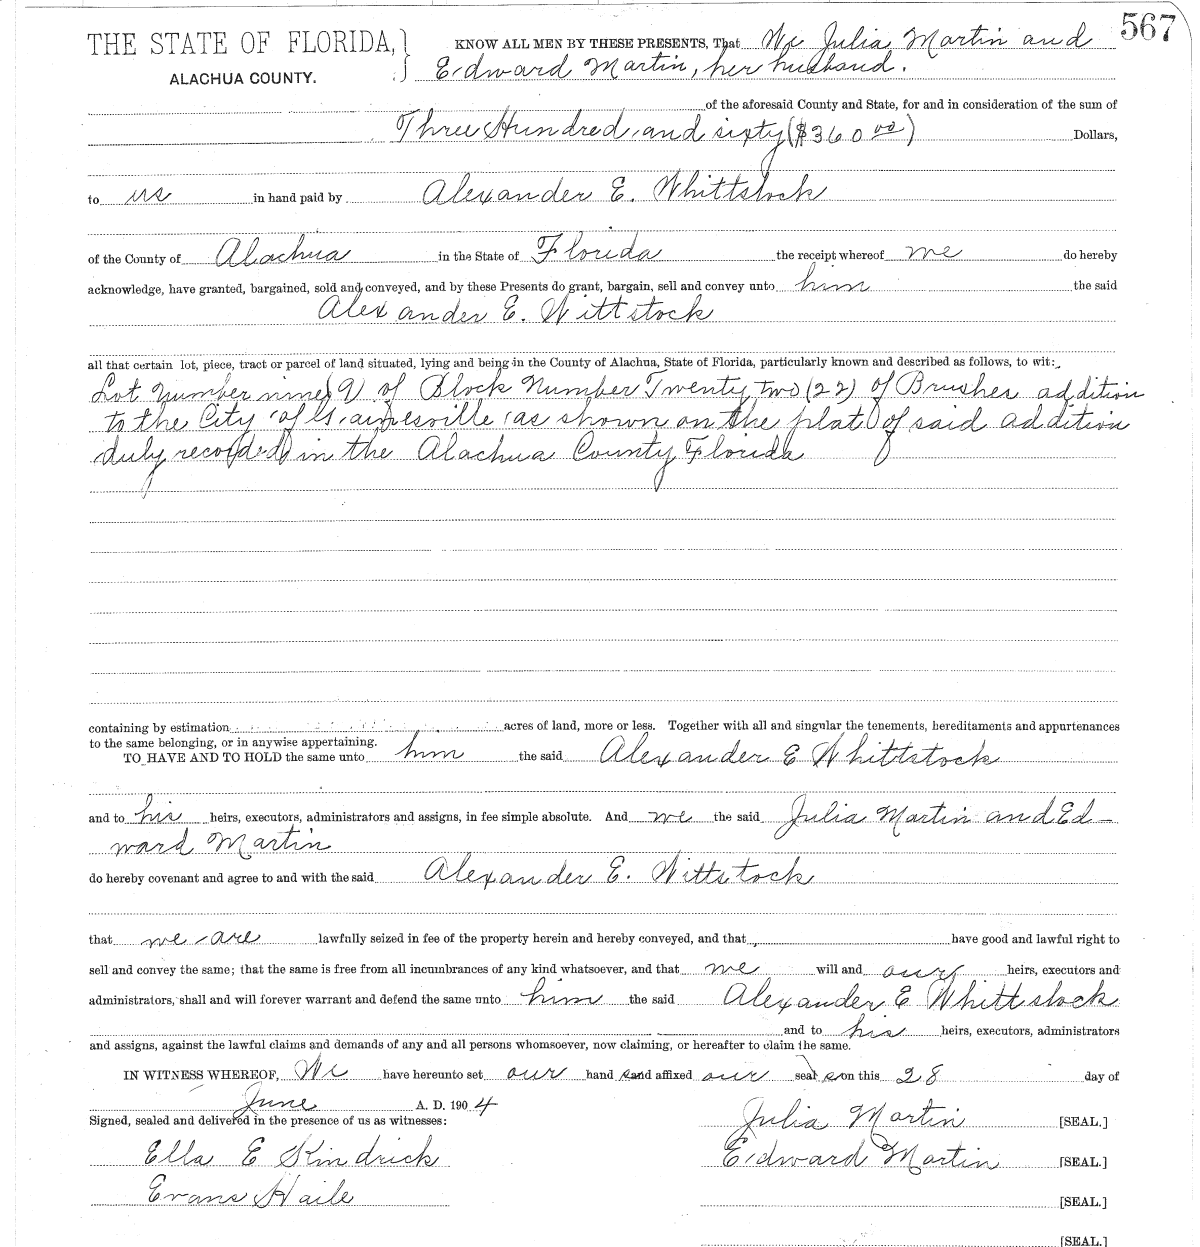 567
THE STATE OF FLORIDA,
ALACHUA COUNTY.
KNOW ALL MEN BY THESE PRESENTS, That We Julia Martin and
Edward Martin, her husband.
of the aforesaid County and State, for and in consideration of the sum of
Three Hundred and sixty ($360 00) Dollars,
to us in hand paid by Alexander E. Whittstock
of the County of Alachua in the State of Florida the receipt whereof we do hereby
acknowledge, have granted, bargained, sold and conveyed, and by these Presents do grant, bargain, sell and convey unto him the said
Alexander E. Wittstock
all that certain lot, piece, tract or parcel of land situated, lying and being in the County of Alachua, State of Florida, particularly known and described as follows, to wit:
Lot Number nine (9) of Block Number Twenty two (22) of Brushes addition
to the City of Gainesville as shown on the plat of said addition
duly recorded in the Alachua County Florida
containing by estimation acres of land, more or less. Together with all and singular the tenements, hereditaments and appurtenances
to the same belonging, or in anywise appertaining.
TO HAVE AND TO HOLD the same unto him the said Alexander E Whittstock
and to his heirs, executors, administrators and assigns, in fee simple absolute. And we the said Julia Martin and Ed-
ward Martin
do hereby covenant and agree to and with the said Alexander E. Wittstock
that we are lawfully seized in fee of the property herein and hereby conveyed, and that have good and lawful right to
sell and convey the same; that the same is free from all incumbrances of any kind whatsoever, and that we will and our heirs, executors and
administrators, shall and will forever warrant and defend the same unto him the said Alexander E Whittstock
and to his heirs, executors, administrators
and assigns, against the lawful claims and demands of any and all persons whomsoever, now claiming, or hereafter to claim the same.
IN WITNESS WHEREOF, We have hereunto set our hand s and affixed our seal s on this 28 day of
June A. D. 1904
Signed, sealed and delivered in the presence of us as witnesses:
Julia Martin [SEAL.]
Ella E Kindrick
Edward Martin [SEAL.]
Evans Haile
[SEAL.]
[SEAL.]